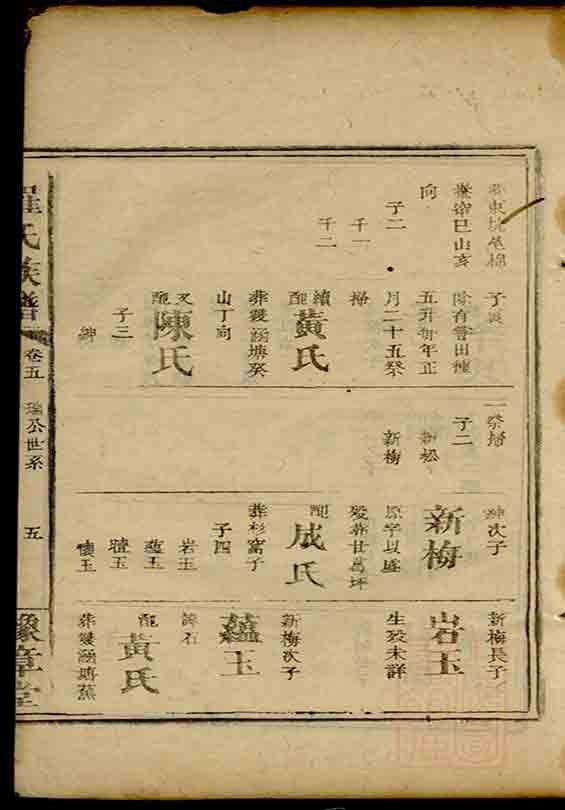 向
葬帘巳山亥
子二
千一
千二
除有嘗田種
五升每年正
月二十五祭
掃
續配
黃氏
葬雙涵塘癸
山丁向
又配
陳氏
子三
紳
一祭掃
子二
新松
新梅
紳次子
新梅
原字以盛
歿葬廿葛坪
配
成氏
葬杉窩子
子四
岩玉
蘊玉
體玉
懷玉
新梅長子
岩玉
生歿未詳
新梅次子
蘊玉
諱石
配
黃氏
葬雙涵塘蕉
羅氏族譜
卷五
瑞公世系
五
豫章堂